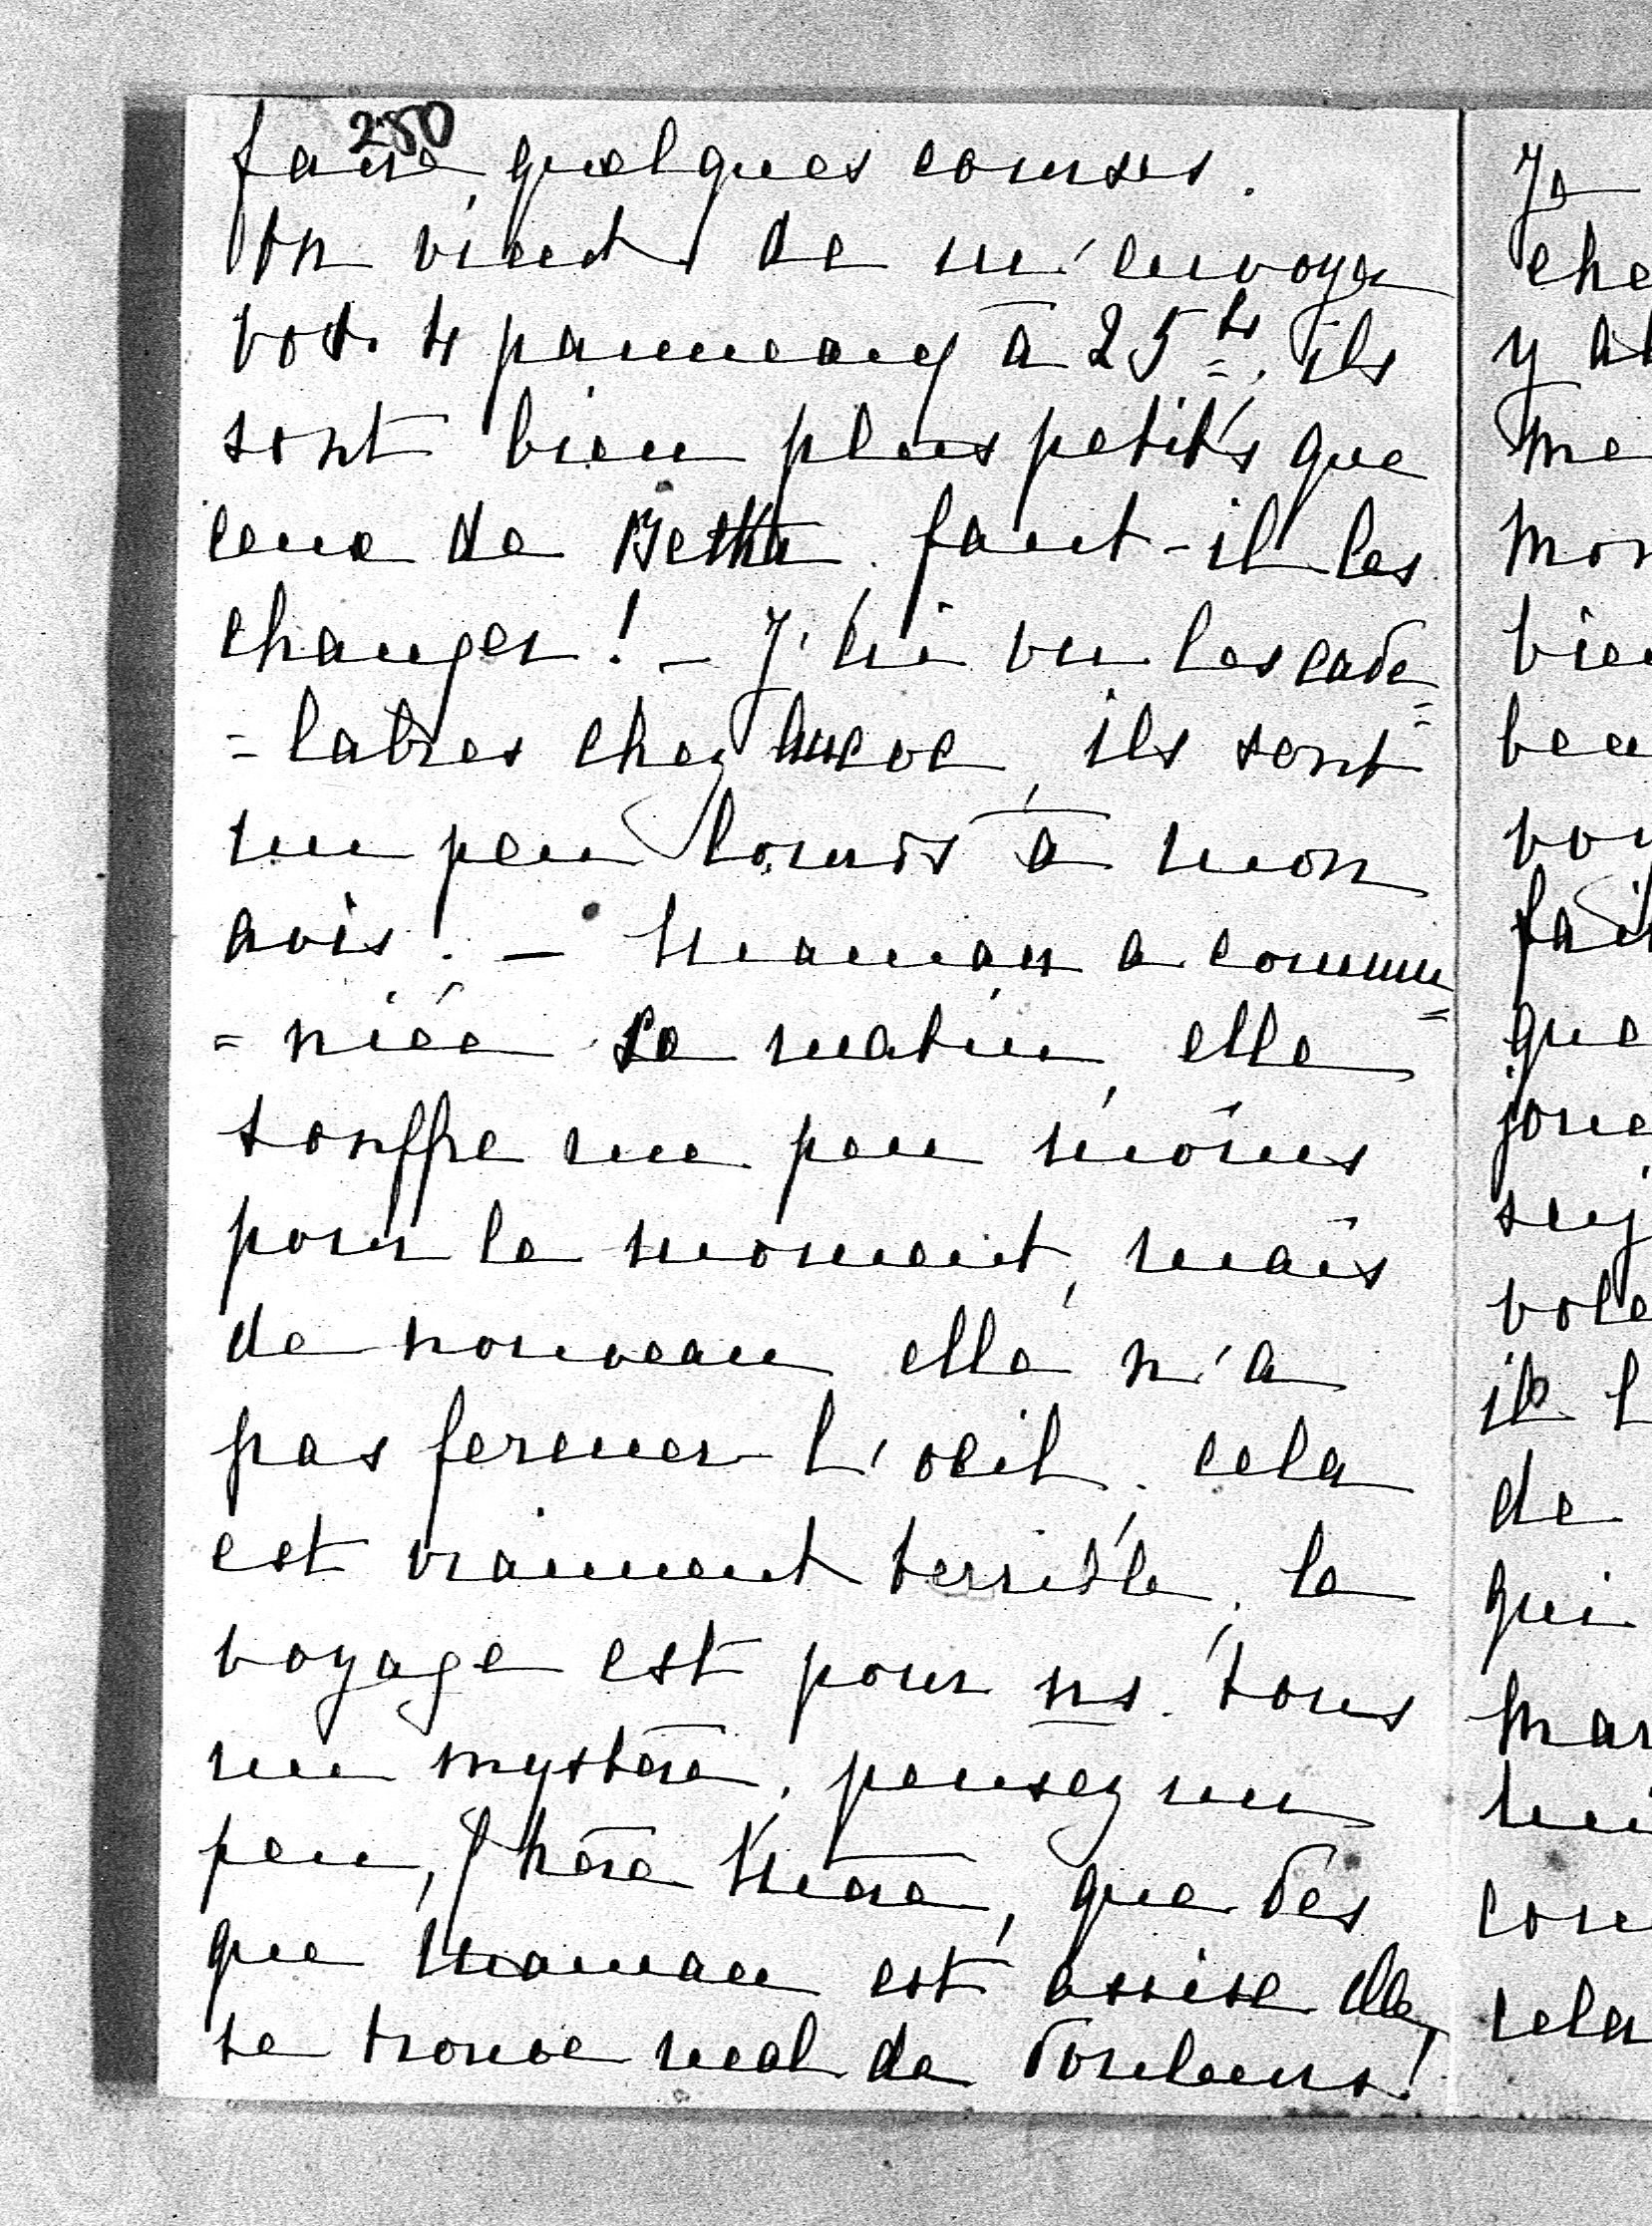 280
faire quelques courses.
On vient de m'envoyer
vot. 4 panneaux à 25 fr, ils
sont bien plus petits que
ceux de Betha. faut-il les
changer! – J'ai vu les cade
=labres chez Lucve, ils sont
un peu lourds à mon
avis! – Maman a commu
=niée ce matin, elle
souffre un peu moins
pour le moment, mais
de nouveau elle n'a
pas fermer l'oeil. cela
est vraiment terrible, le
voyage est pour ns. tous
un mystère. pensez un
peu, Chère Mère, que dès
que Maman est assise elle
se trouve mal de douleurs!
Je
che
y a
me
mon
bie
beau
vou
fait
que
joue
suj
vole
ils l
de
qui
mar
cou
cela